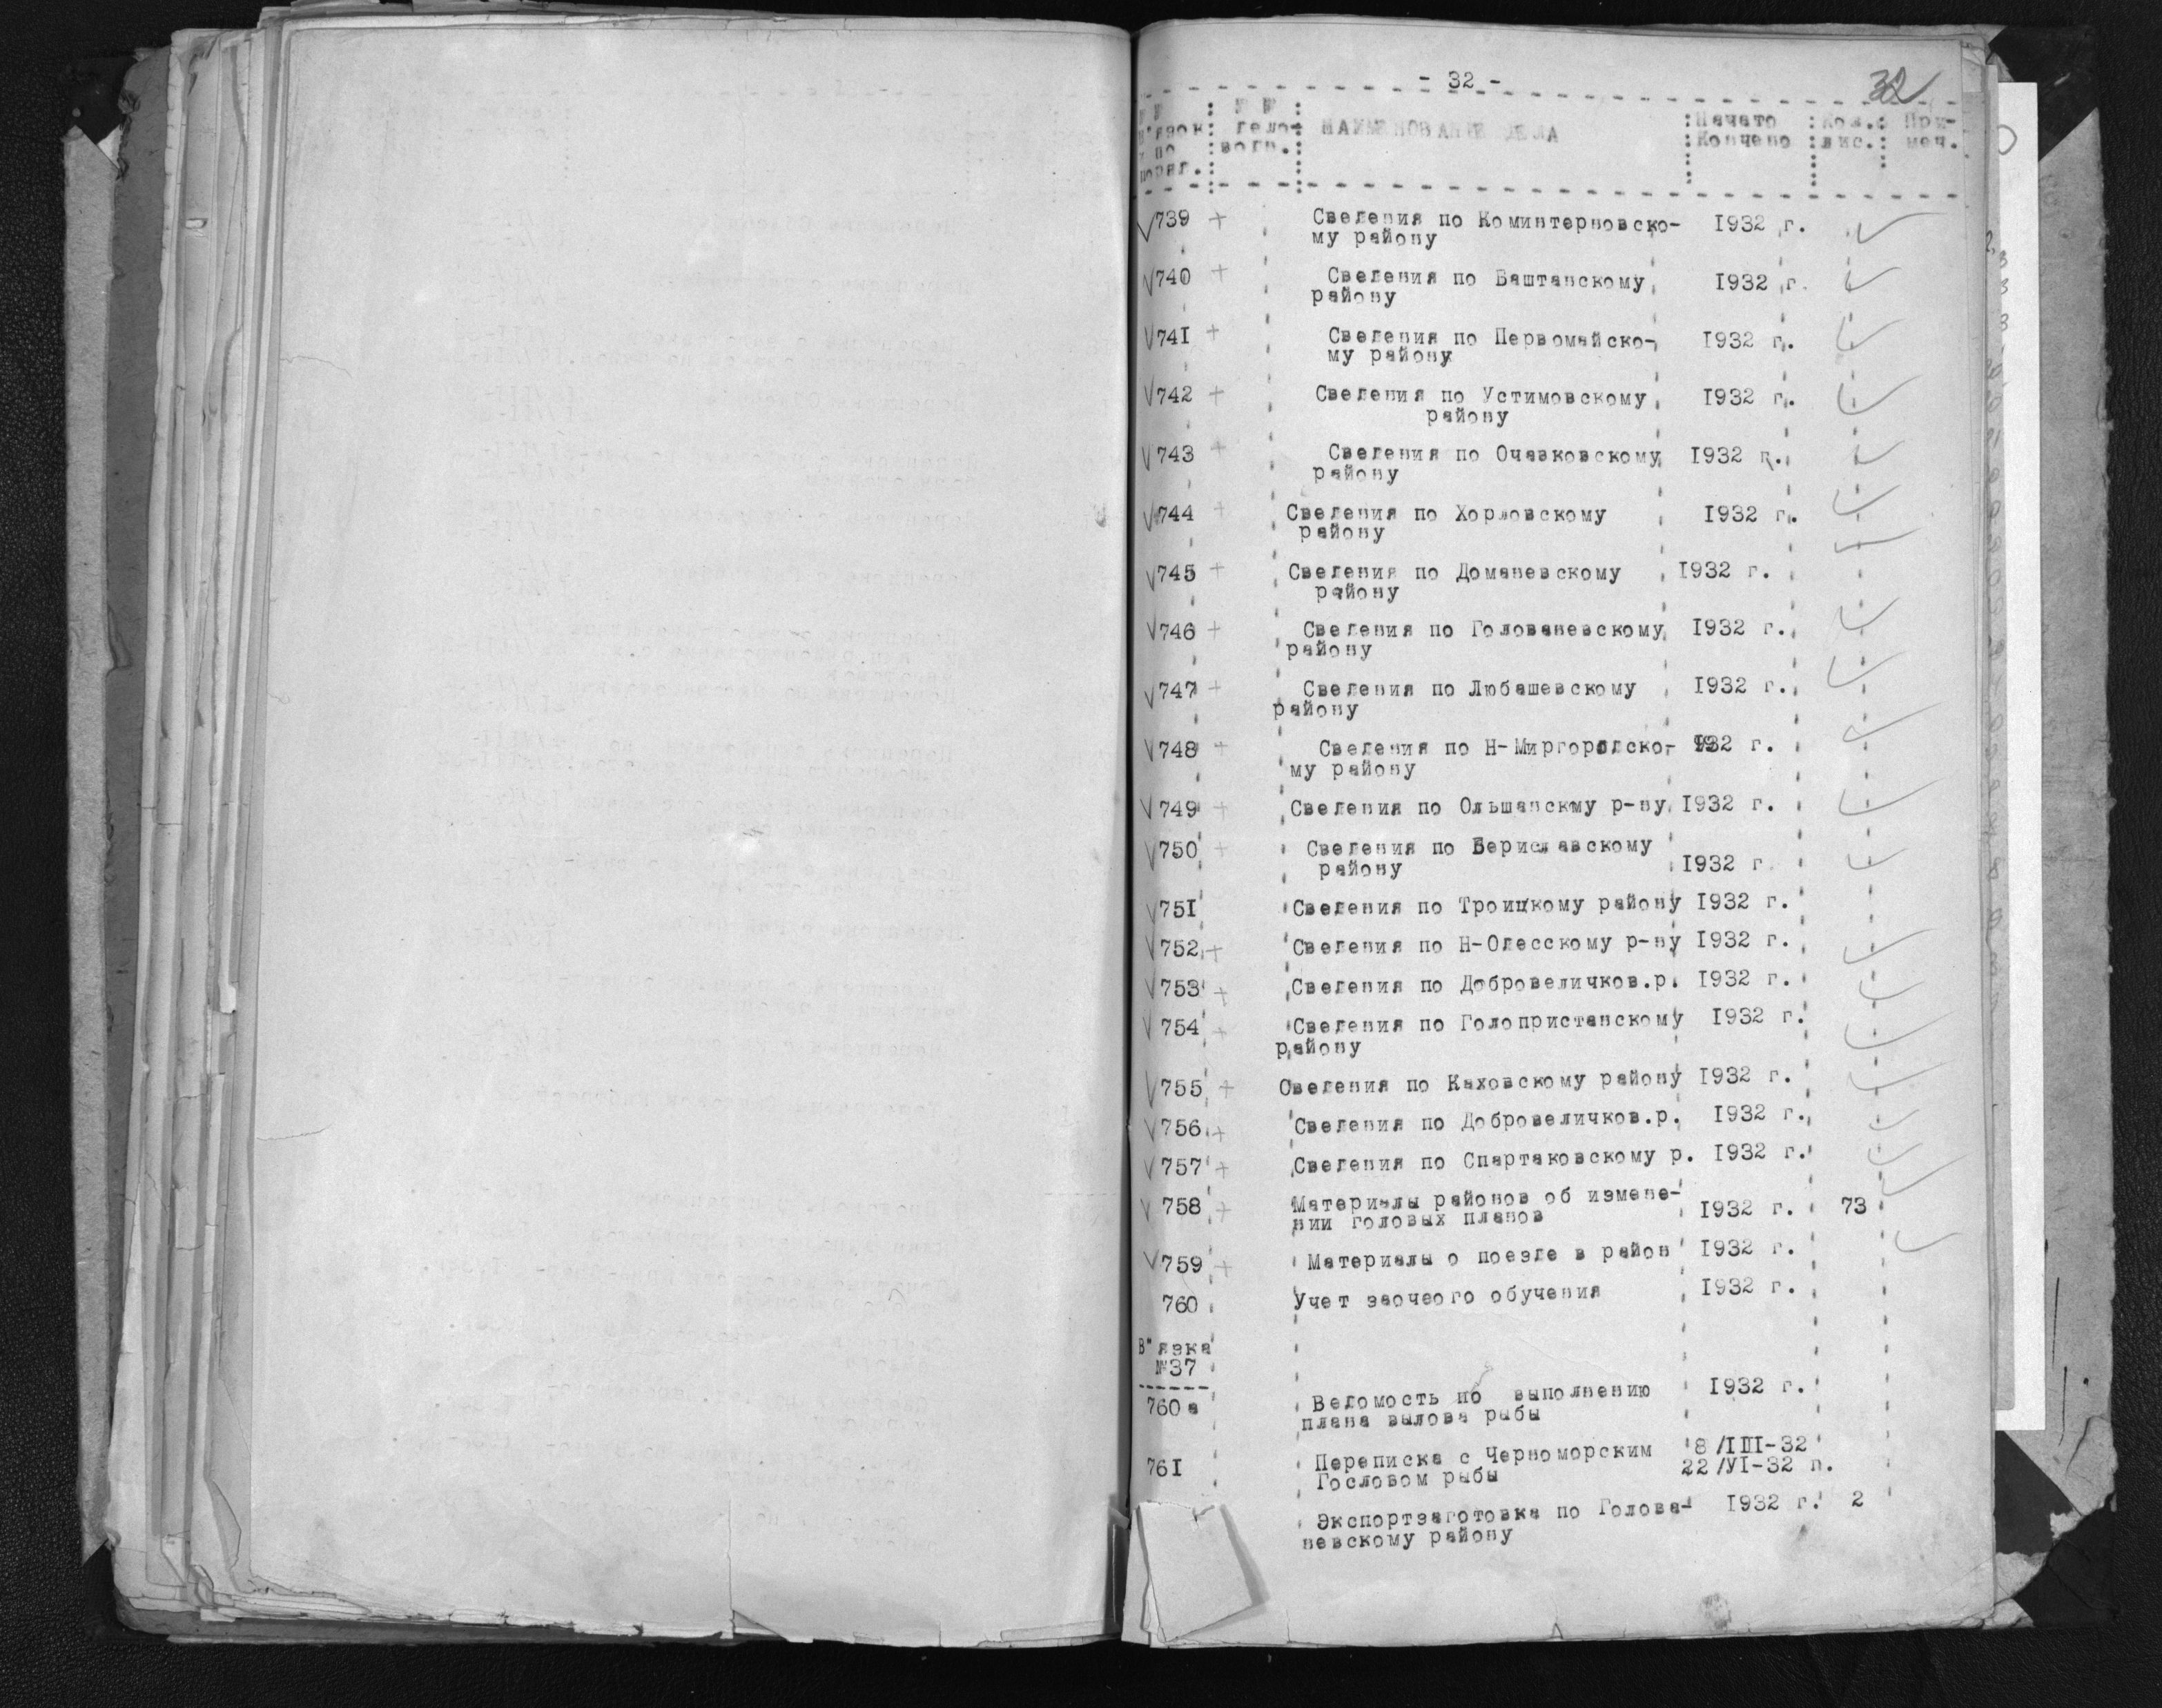 - 32 -
32
№ №
в"язок
и по
поряд.
№ №
дело-
водн.
НАИМЕНОВАНИЕ ДЕЛА
Начато
Кончено
Кол.
лис.
При-
меч.
739 + Сведения по Коминтерновско- 1932 г.
му району
740 + Сведения по Баштанскому 1932 г.
району
741 + Сведения по Первомайско- 1932 г.
му району
742 + Сведения по Устимовскому 1932 г.
району
743 + Сведения по Очаковскому 1932 г.
району
744 + Сведения по Хорловскому 1932 г.
району
745 + Сведения по Доманевскому 1932 г.
району
746 + Сведения по Голованевскому 1932 г.
району
747 + Сведения по Любашевскому 1932 г.
району
748 + Сведения по Н-Миргородско- 1932 г.
му району
749 + Сведения по Ольшанскму р-ну 1932 г.
750 + Сведения по Бериславскому
району 1932 г.
751 Сведения по Троицкому району 1932 г.
752 + Сведения по Н-Одесскому р-ну 1932 г.
753 + Сведения по Добровеличков.р. 1932 г.
754 + Сведения по Голопристанскому 1932 г.
району
755 + Сведения по Каховскому району 1932 г.
756 + Сведения по Добровеличков.р. 1932 г.
757 + Сведения по Спартаковскому р. 1932 г.
758 + Материалы районов об измене-
нии годовых планов 1932 г. 73
759 + Материалы о поезде в район 1932 г.
760 Учет заочеого обучения 1932 г.
В"язка
№37
760а Ведомость по выполнению 1932 г.
плана вылова рыбы
761 Переписка с Черноморским 8/III-32
Гословом рыбы 22/УI-32 г.
Экспортзаготовка по Голова- 1932 г. 2
невскому району